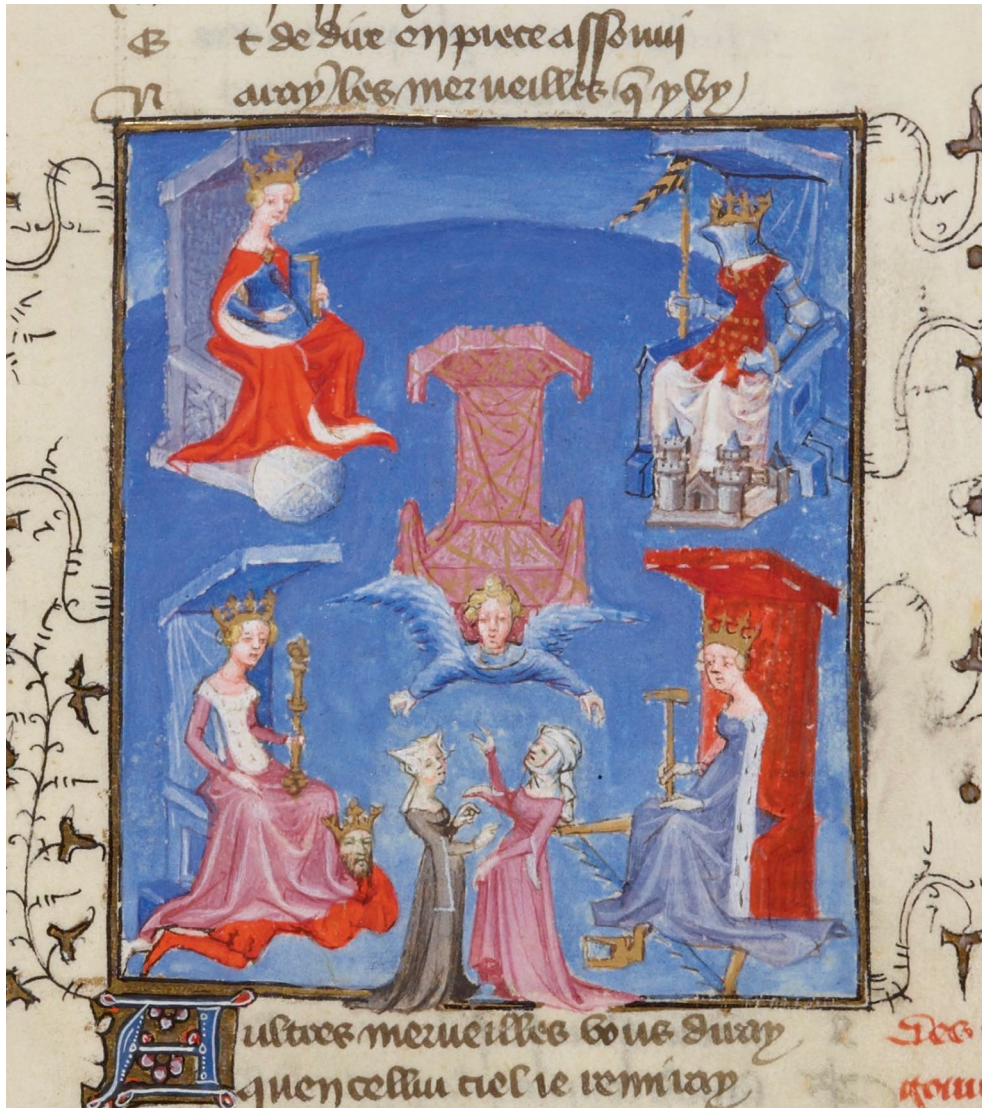 Et de dire en piece assouui
N aray les merueilles q̄ y vy
Aultres merueilles vous diray
Quen cellui ciel ie remiray
Des